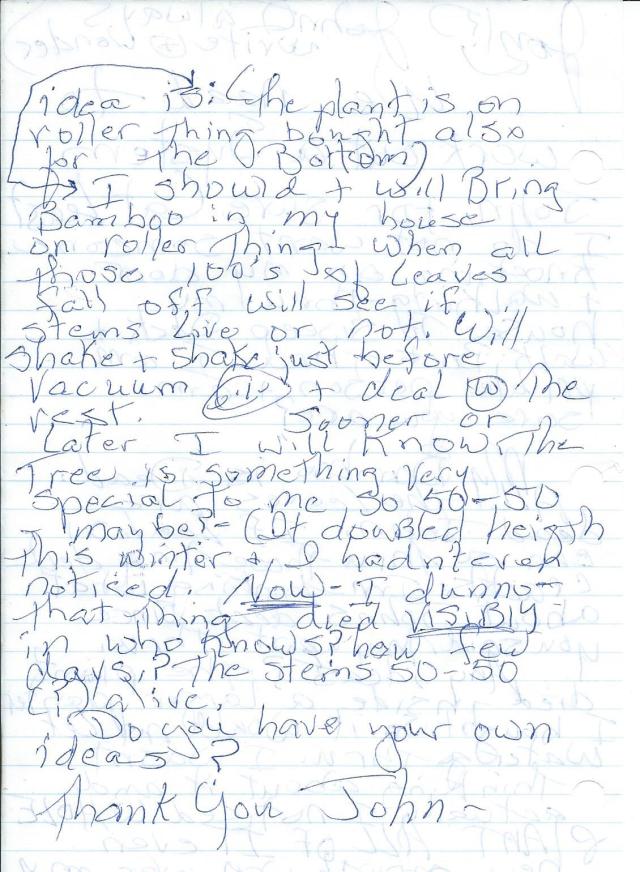 idea is: (the plant is on
roller thing bought also
for the Bottom)
I should + will Bring
Bamboo in my house
on roller thing - when all
those 100's of Leaves
fall off will see if
stems Live or not. Will
shake + shake just before
vacuum + deal w the
rest. Sooner or
Later I will Know. The
Tree is something very
special to me so 50-50
maybe? - (It doubled heigth
this winter + I hadn't even
noticed. Now - I dunno -
that thing died VISIBLY
in who knows? how few
days.? The stems 50-50
(?) alive.
Do you have your own
ideas?
Thank You John -